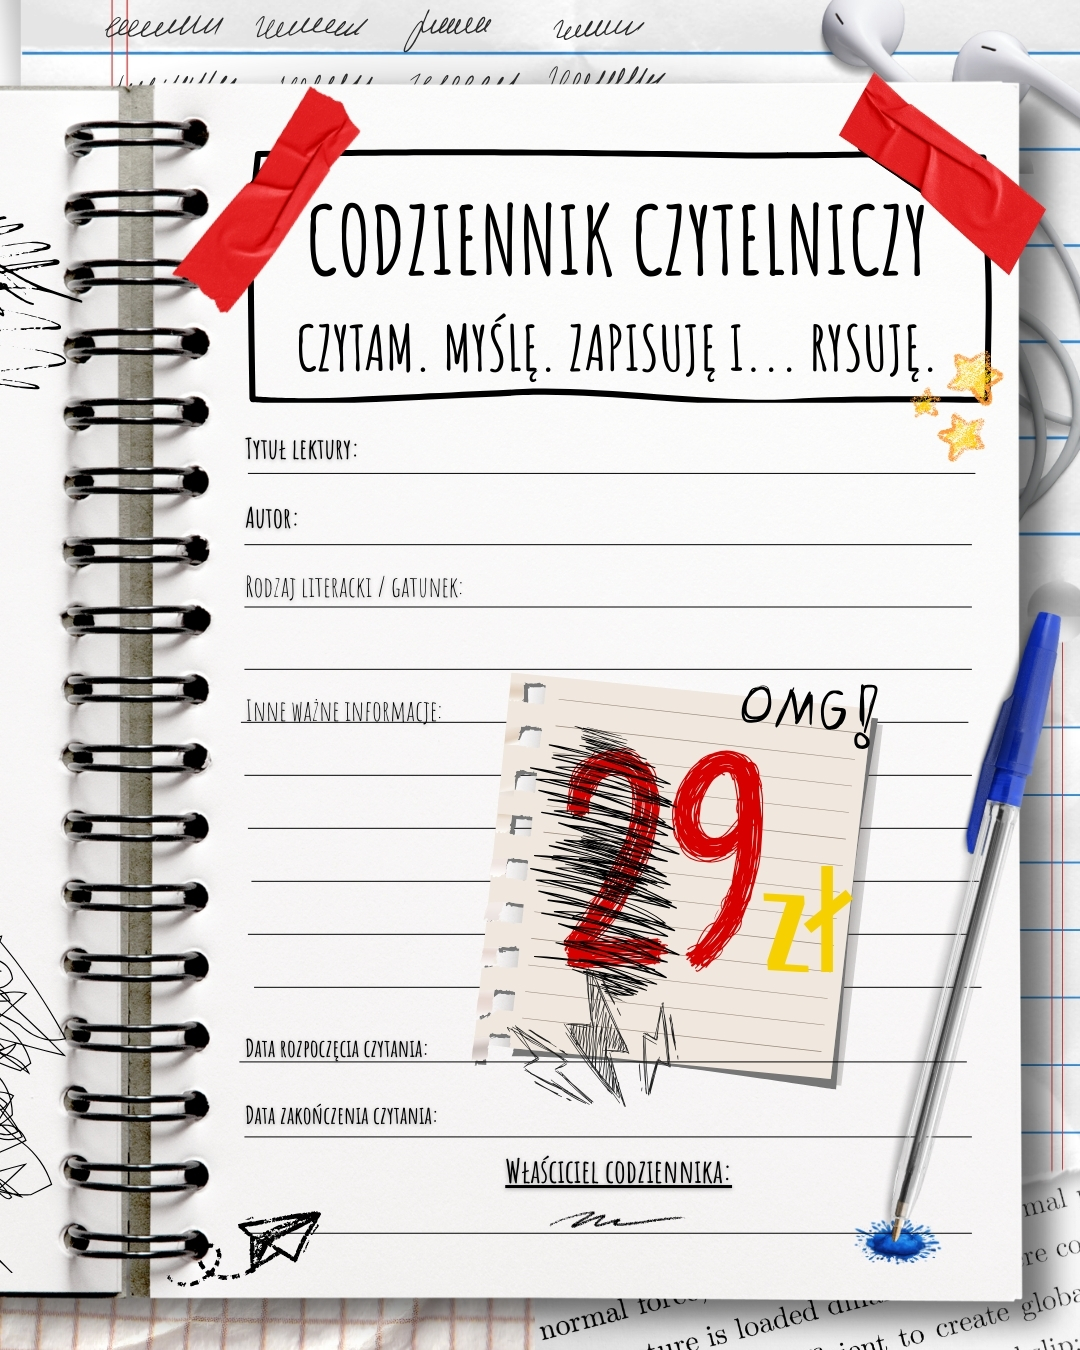 CODZIENNIK CZYTELNICZY
CZYTAM. MYŚLĘ. ZAPISUJĘ I... RYSUJĘ.
TYTUŁ LEKTURY:
AUTOR:
RODZAJ LITERACKI / GATUNEK:
INNE WAŻNE INFORMACJE:
OMG!
29
zł
DATA ROZPOCZĘCIA CZYTANIA:
DATA ZAKOŃCZENIA CZYTANIA:
WŁAŚCICIEL CODZIENNIKA:
normal
is loaded
to create